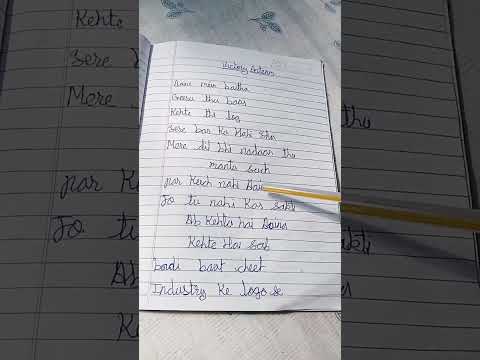 Victory Anteam
Kone mein baitha
Kehte thi log
Tere bas ka Hahi Sha
Mere dil bhi nadaan thu
manta such
par Kuch nahi Bai
Jo tu nahi Kar sakti
Ab Kehta hai Aaina
Kehte Hai Sab
Badi baat cheet
Industry Ke logo se